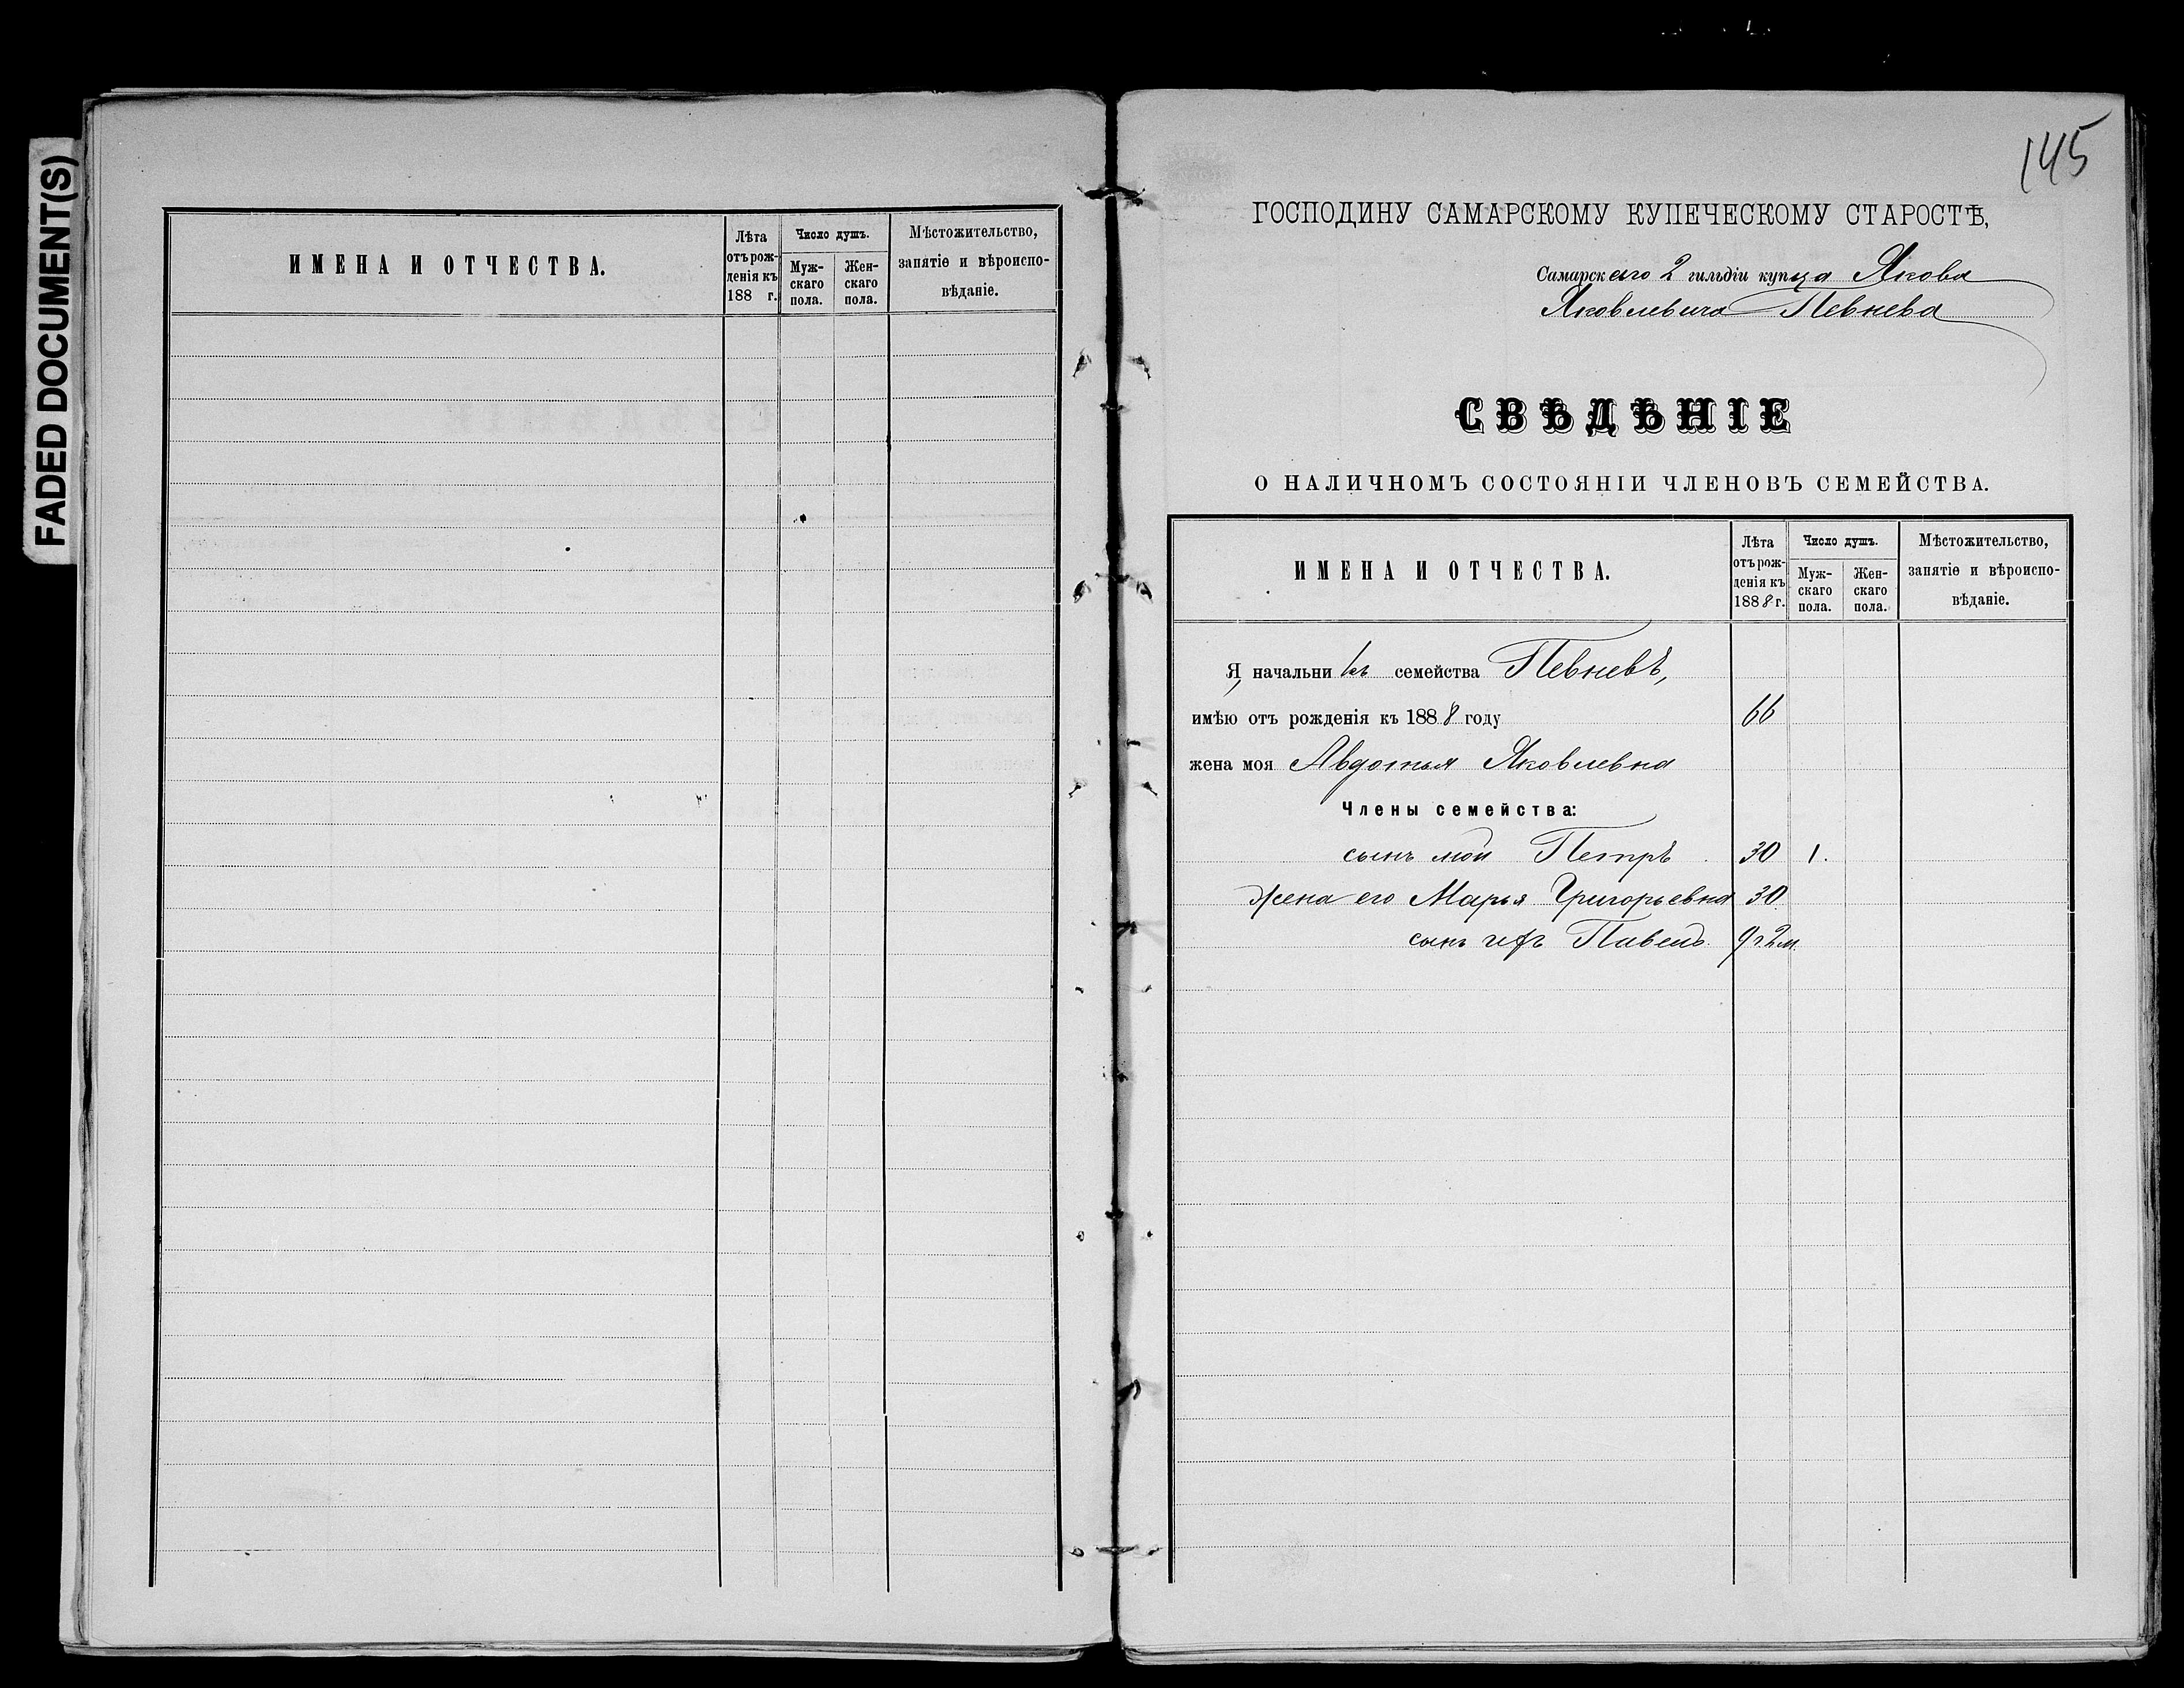 FADED DOCUMENT(S)
ИМЕНА И ОТЧЕСТВА.
Лѣта
отъ рож-
денія къ
188 г.
Число душъ.
Муж-
скаго
пола.
Жен-
скаго
пола.
Мѣстожительство,
занятіе и вѣроиспо-
вѣданіе.
145
ГОСПОДИНУ САМАРСКОМУ КУПЕЧЕСКОМУ СТАРОСТѢ,
Самарскаго 2 гильдіи купца Якова
Яковлевича Певнева
СВѢДѢНІЕ
О НАЛИЧНОМЪ СОСТОЯНІИ ЧЛЕНОВЪ СЕМЕЙСТВА.
ИМЕНА И ОТЧЕСТВА.
Лѣта
отъ рож-
денія къ
1888 г.
Число душъ.
Муж-
скаго
пола.
Жен-
скаго
пола.
Мѣстожительство,
занятіе и вѣроиспо-
вѣданіе.
Я, начальникъ семейства Певневъ,
имѣю отъ рожденія къ 1888 году 66
жена моя Авдотья Яковлевна
Члены семейства:
сынъ мой Петръ 30 1.
жена его Марья Григорьевна 30
сынъ ихъ Павелъ 9 г 2 м.